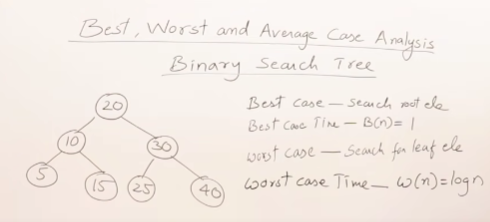 Best, Worst and Average Case Analysis
Binary Search Tree
20
10
30
5
15
25
40
Best case — search root ele
Best Case Time — B(n) = 1
worst case — Search for leaf ele
worst case Time — w(n) = logn